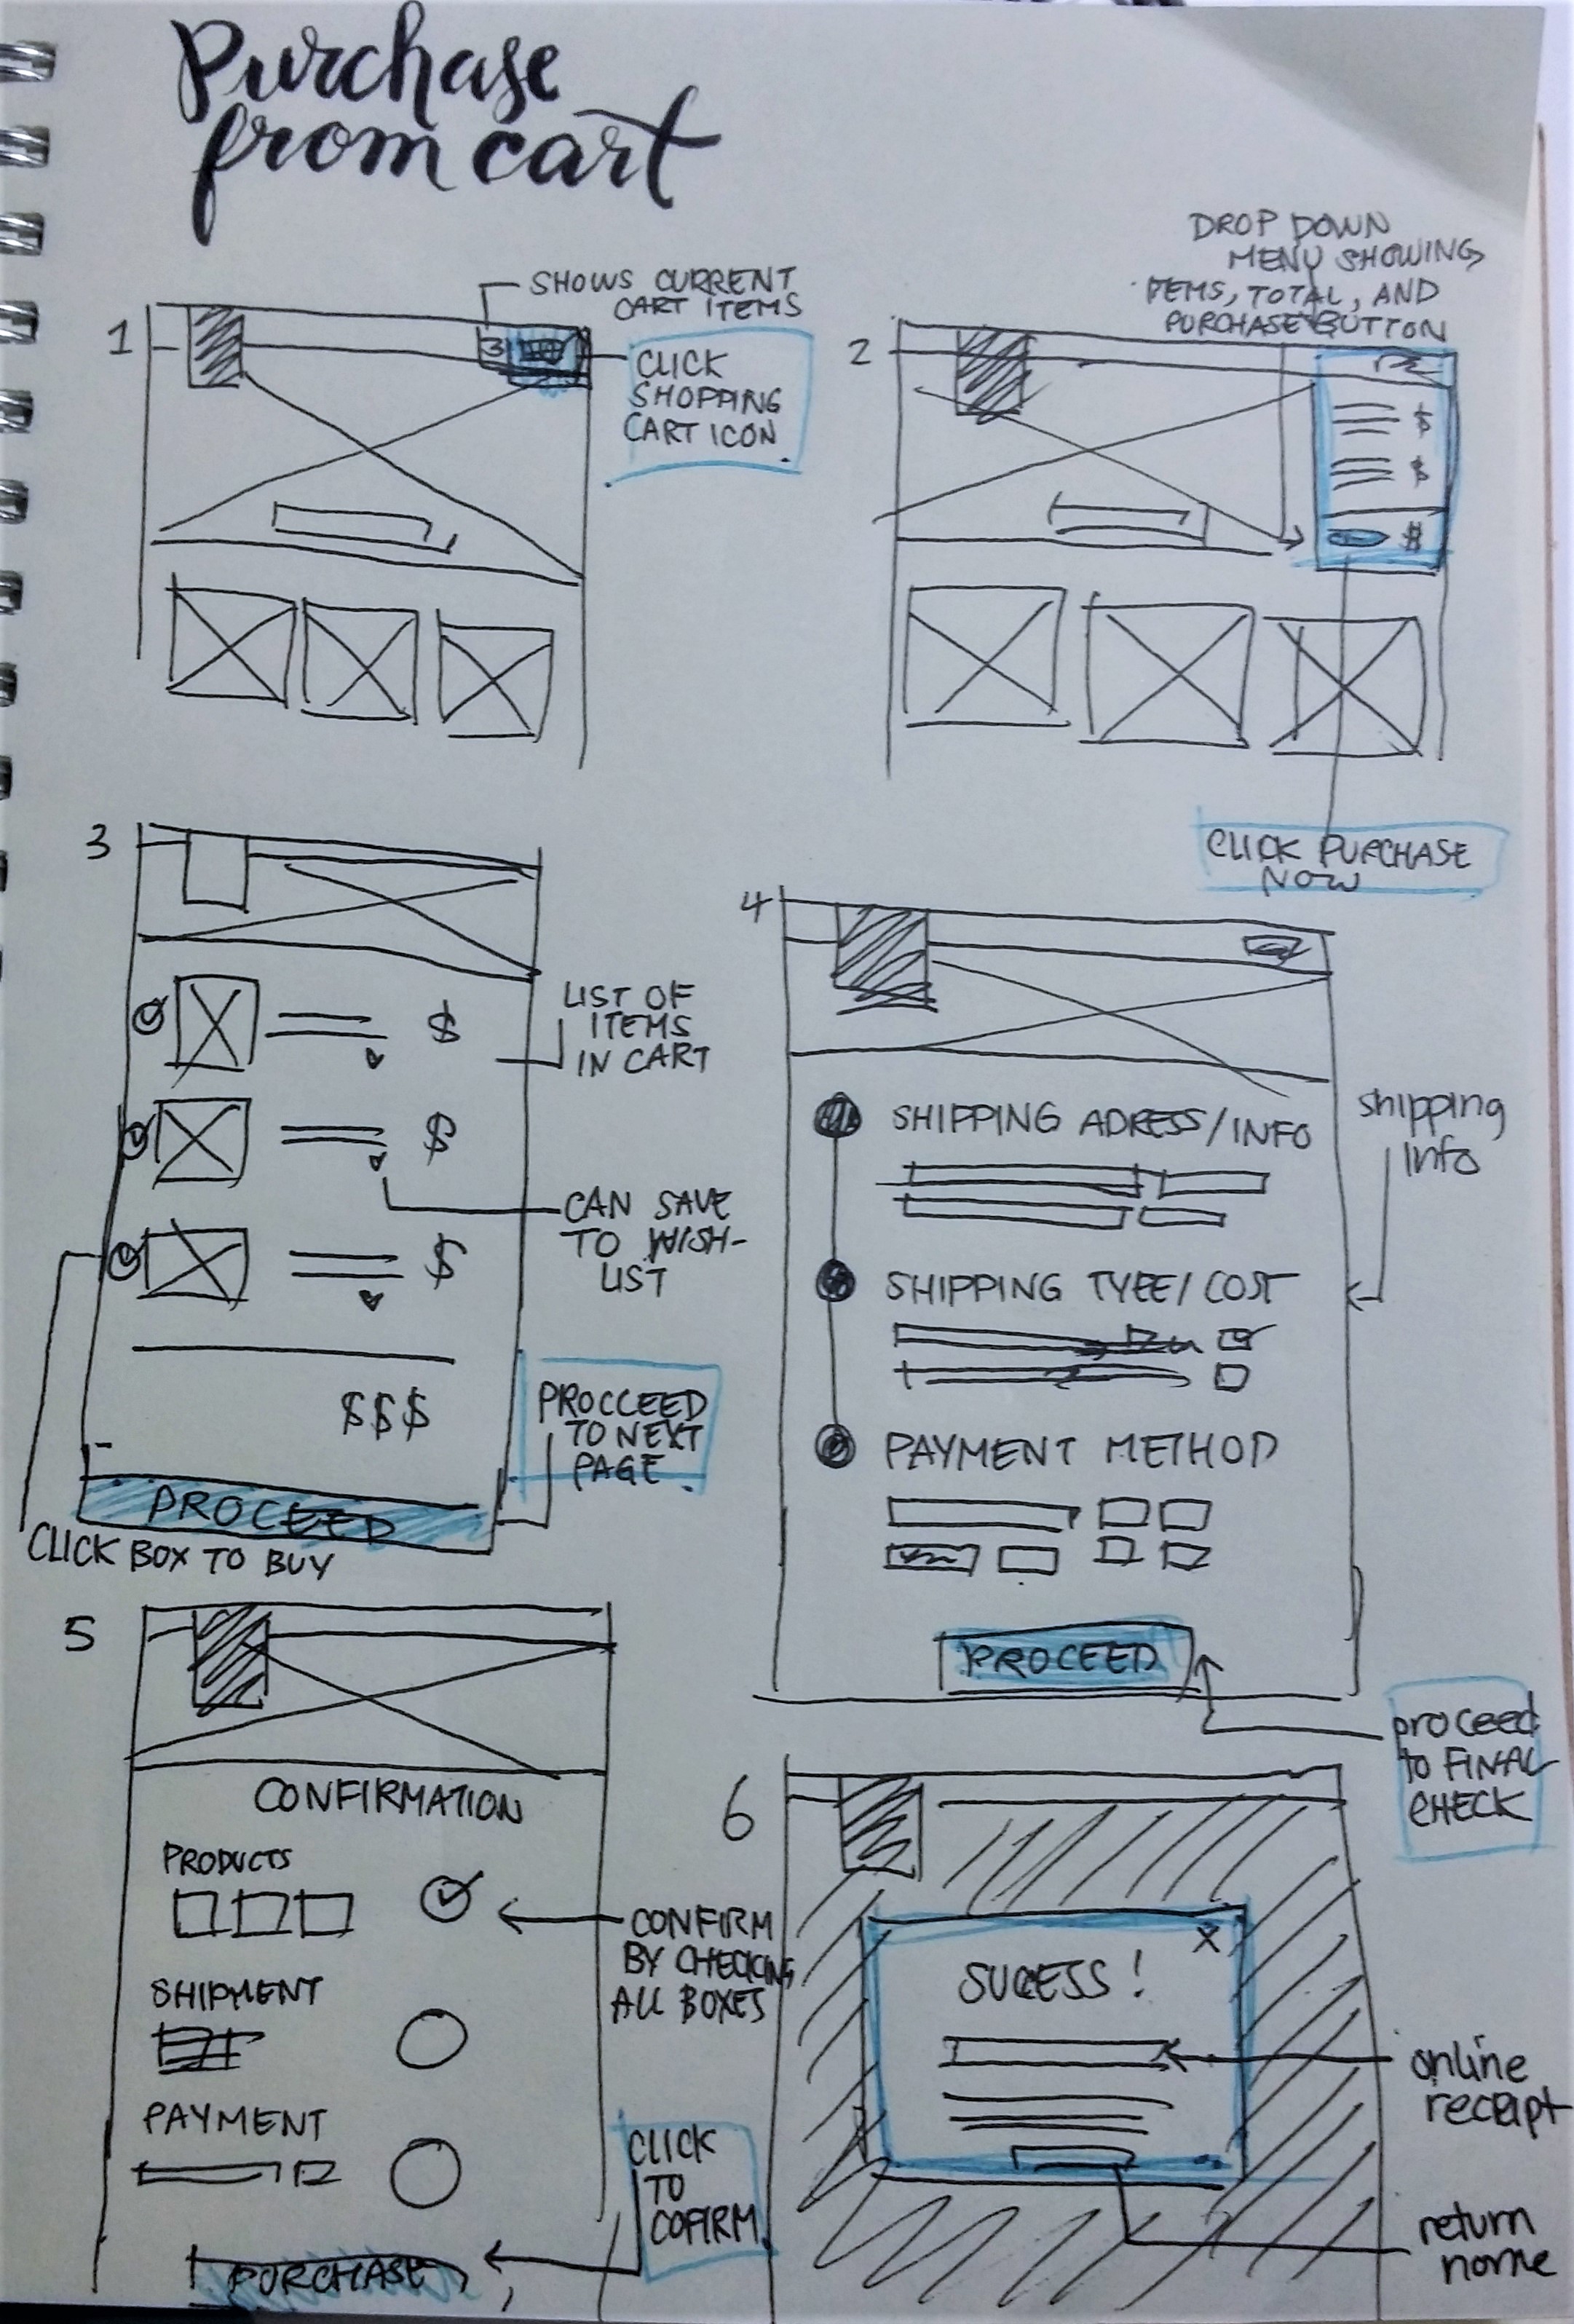 Purchase
from cart
1
SHOWS CURRENT
CART ITEMS
3
CLICK
SHOPPING
CART ICON
2
DROP DOWN
MENU SHOWING
ITEMS, TOTAL, AND
PURCHASE BUTTON
$
$
#
CLICK PURCHASE
NOW
3
$
LIST OF
ITEMS
IN CART
$
CAN SAVE
TO WISH-
LIST
$
$$$
PROCCEED
TO NEXT
PAGE
PROCEED
CLICK BOX TO BUY
4
SHIPPING ADRESS/INFO
shipping
info
SHIPPING TYPE/COST
PAYMENT METHOD
PROCEED
proceed
to FINAL
CHECK
5
CONFIRMATION
PRODUCTS
CONFIRM
BY CHECKING
ALL BOXES
SHIPMENT
PAYMENT
CLICK
TO
COFIRM
PURCHASE
6
X
SUCESS!
online
receipt
return
home